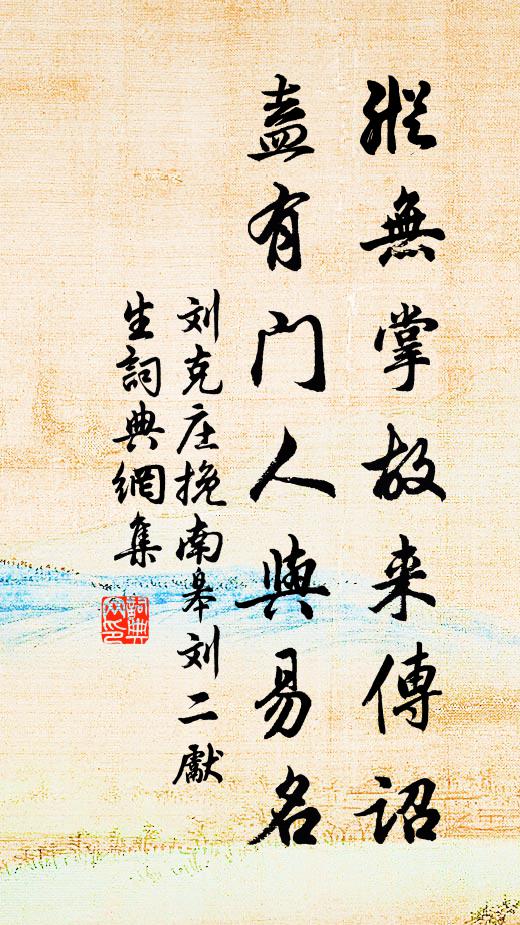 縱無掌故来傳詔
盍有門人與易名
刘克庄挽南皋刘二獻
生詞典網集
詞典網印